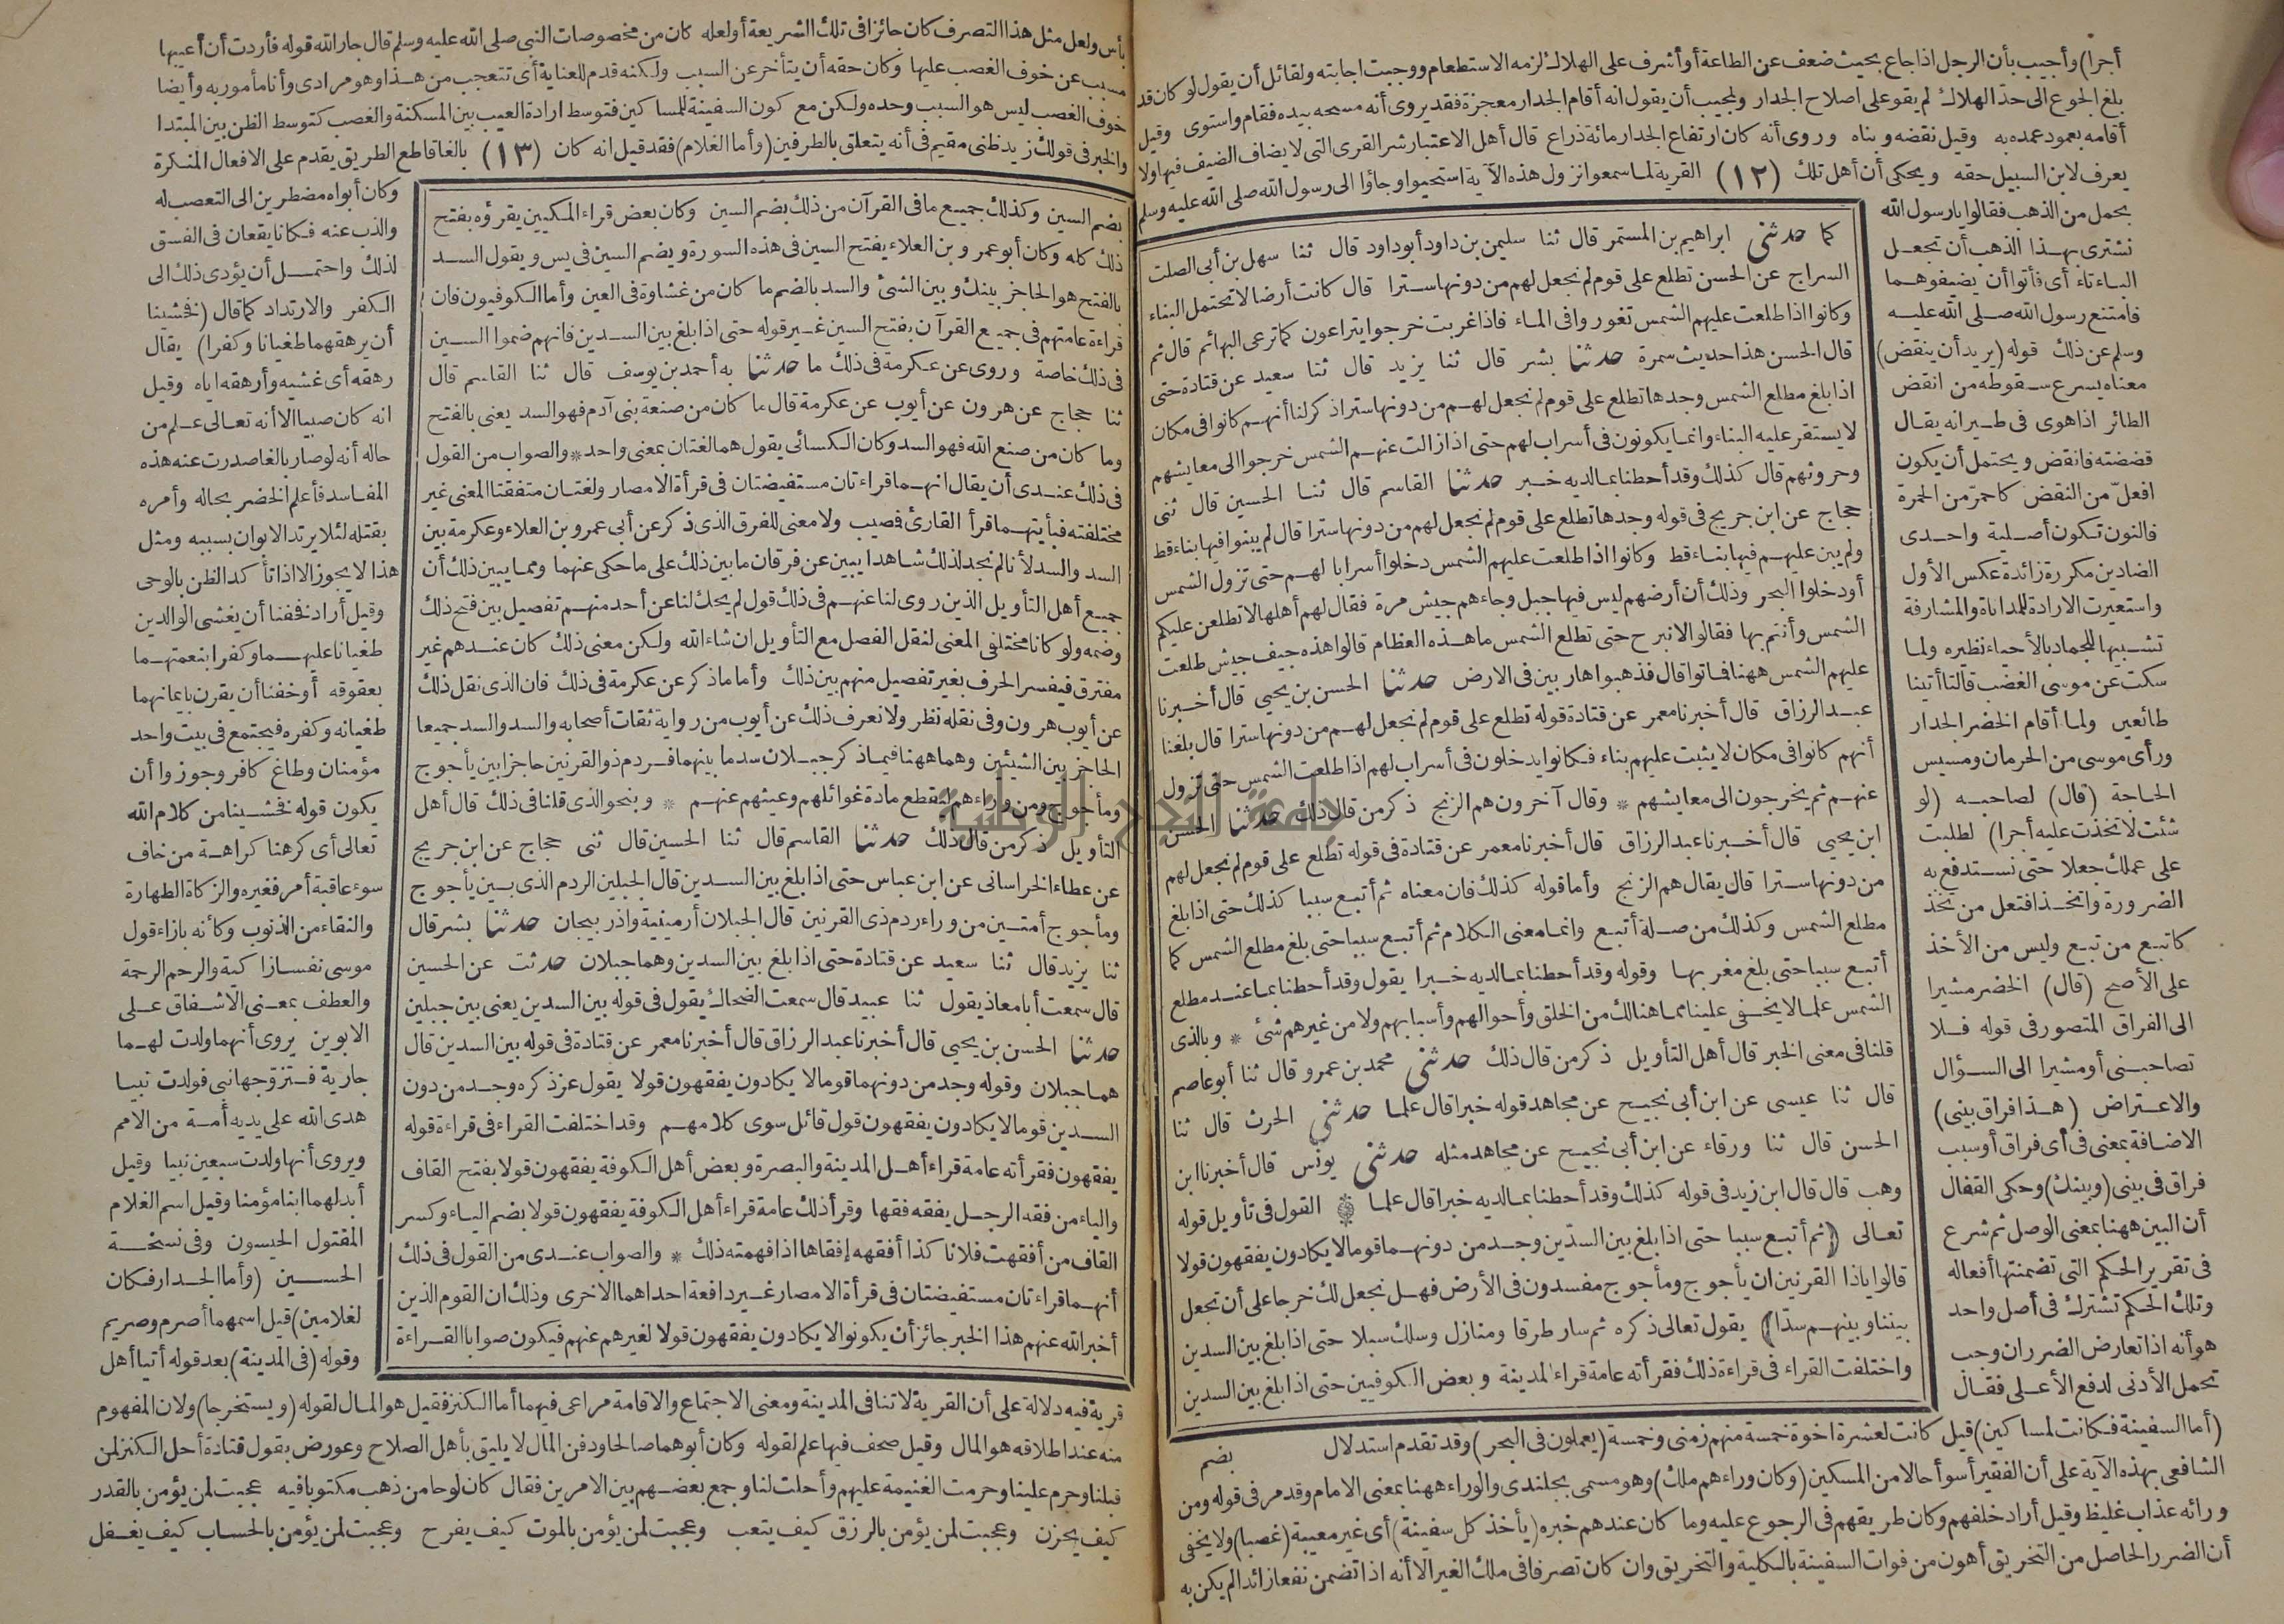 أجرا) وأجيب بأن الرجل اذا جاع بحيث ضعف عن الطاعة أو أشرف على الهلاك لزمه الاستطعام ووجبت اجابته ولقائل أن يقول لو كان قد
بلغ الجوع الى حد الهلاك لم يقو على اصلاح الجدار ولمجيب أن يقول انه أقام الجدار معجزة فقد يروى أنه مسحه بيده فقام واستوى وقيل
أقامه بعمود عمده به وقيل نقضه وبناه وروى أنه كان ارتفاع الجدار مائة ذراع قال أهل الاعتبار شر القرى التى لا يضاف الضيف فيها ولا
يعرف لابن السبيل حقه ويحكى أن أهل تلك (١٢) القرية لما سمعوا نزول هذه الآية استحيوا وجاؤا الى رسول الله صلى الله عليه وسلم
بحمل من الذهب فقالوا يارسول الله
نشترى بهذا الذهب أن تجعل
الباء تاء أى فأتوا أن يضيفوهما
فامتنع رسول الله صلى الله عليه
وسلم عن ذلك قوله (يريد أن ينقض)
معناه يسرع سقوطه من انقض
الطائر اذا هوى فى طيرانه يقال
قضضته فانقض ويحتمل أن يكون
افعلّ من النقض كاحمرّ من الحمرة
فالنون تكون أصلية واحدى
الضادين مكررة زائدة عكس الأول
واستعيرت الارادة للمداناة والمشارفة
تشبيها للجماد بالأحياء نظيره ولما
سكت عن موسى الغضب قالتا أتينا
طائعين ولما أقام الخضر الجدار
ورأى موسى من الحرمان ومسيس
الحاجة (قال) لصاحبه (لو
شئت لاتخذت عليه أجرا) لطلبت
على عملك جعلا حتى نستدفع به
الضرورة واتخذ افتعل من تخذ
كاتبع من تبع وليس من الأخذ
على الأصح (قال) الخضر مشيرا
الى الفراق المتصور فى قوله فلا
تصاحبنى أو مشيرا الى السؤال
والاعتراض (هذا فراق بينى)
الاضافة بمعنى فى أى فراق أو سبب
فراق فى بينى (وبينك) وحكى القفال
أن البين ههنا بمعنى الوصل ثم شرع
فى تقرير الحكم التى تضمنتها أفعاله
وتلك الحكم تشترك فى أصل واحد
هو أنه اذا تعارض الضرران وجب
تحمل الأدنى لدفع الأعلى فقال
كما حدثنى ابراهيم بن المستمر قال ثنا سليمن بن داود أبو داود قال ثنا سهل بن أبى الصلت
السراج عن الحسن تطلع على قوم لم نجعل لهم من دونها سترا قال كانت أرضا لا تحتمل البناء
وكانوا اذا طلعت عليهم الشمس تغوروا فى الماء فاذا غربت خرجوا يتراعون كما ترعى البهائم قال ثم
قال الحسن هذا حديث سمرة حدثنا بشر قال ثنا يزيد قال ثنا سعيد عن قتادة حتى
اذا بلغ مطلع الشمس وجدها تطلع على قوم لم نجعل لهم من دونها سترا ذكر لنا أنهم كانوا فى مكان
لا يستقر عليه البناء وانما يكونون فى أسراب لهم حتى اذا زالت عنهم الشمس خرجوا الى معايشهم
وحروثهم قال كذلك وقد أحطنا بما لديه خبر حدثنا القاسم قال ثنا الحسين قال ثنى
حجاج عن ابن جريج فى قوله وجدها تطلع على قوم لم نجعل لهم من دونها سترا قال لم يبنوا فيها بناء قط
ولم يبن عليهم فيها بناء قط وكانوا اذا طلعت عليهم الشمس دخلوا أسرابا لهم حتى تزول الشمس
أو دخلوا البحر وذلك أن أرضهم ليس فيها جبل وجاءهم جيش مرة فقال لهم أهلها لا تطلعن عليكم
الشمس وأنتم بها فقالوا لا نبرح حتى تطلع الشمس ما هذه العظام قالوا هذه جيف جيش طلعت
عليهم الشمس ههنا فماتوا قال فذهبوا هاربين فى الارض حدثنا الحسن بن يحيى قال أخبرنا
عبد الرزاق قال أخبرنا معمر عن قتادة قوله تطلع على قوم لم نجعل لهم من دونها سترا قال بلغنا
أنهم كانوا فى مكان لا يثبت عليهم بناء فكانوا يدخلون فى أسراب لهم اذا طلعت الشمس حتى تزول
عنهم ثم يخرجون الى معايشهم * وقال آخرون هم الزنج ذكر من قال ذلك حدثنا الحسن
ابن يحيى قال أخبرنا عبد الرزاق قال أخبرنا معمر عن قتادة فى قوله تطلع على قوم لم نجعل لهم
من دونها سترا قال يقال هم الزنج وأما قوله كذلك فان معناه ثم أتبع سببا كذلك حتى اذا بلغ
مطلع الشمس وكذلك من صلة أتبع وانما معنى الكلام ثم أتبع سببا حتى بلغ مطلع الشمس كما
أتبع سببا حتى بلغ مغربها وقوله وقد أحطنا بما لديه خبرا يقول وقد أحطنا بما عند مطلع
الشمس علما لا يخفى علينا مما هنالك من الخلق وأحوالهم وأسبابهم ولا من غيرهم شئ * وبالذى
قلنا فى معنى الخبر قال أهل التأويل ذكر من قال ذلك حدثنى محمد بن عمرو قال ثنا أبو عاصم
قال ثنا عيسى عن ابن أبى نجيح عن مجاهد قوله خبرا قال علما حدثنى الحرث قال ثنا
الحسن قال ثنا ورقاء عن ابن أبى نجيح عن مجاهد مثله حدثنى يونس قال أخبرنا ابن
وهب قال قال ابن زيد فى قوله كذلك وقد أحطنا بما لديه خبرا قال علما * القول فى تأويل قوله
تعالى (ثم أتبع سببا حتى اذا بلغ بين السدّين وجد من دونهما قوما لا يكادون يفقهون قولا
قالوا ياذا القرنين ان يأجوج ومأجوج مفسدون فى الأرض فهل نجعل لك خرجا على أن تجعل
بيننا وبينهم سدّا) يقول تعالى ذكره ثم سار طرقا ومنازل وسلك سبلا حتى اذا بلغ بين السدين
واختلفت القراء فى قراءة ذلك فقرأته عامة قراء المدينة وبعض الكوفيين حتى اذا بلغ بين السدين
بضم
(أما السفينة فكانت لمساكين) قيل كانت لعشرة اخوة خمسة منهم زمنى وخمسة (يعملون فى البحر) وقد تقدم استدلال
الشافعى بهذه الآية على أن الفقير أسوأ حالا من المسكين (وكان وراءهم ملك) وهو مسمى بجلندى والوراء ههنا بمعنى الامام وقد مر فى قوله ومن
ورائه عذاب غليظ وقيل أراد خلفهم وكان طريقهم فى الرجوع عليه وما كان عندهم خبره (يأخذ كل سفينة) أى غير معيبة (غصبا) ولا يخفى
أن الضرر الحاصل من التخريق أهون من فوات السفينة بالكلية والتخريق وان كان تصرفا فى ملك الغير الا أنه اذا تضمن نفعا زائدا لم يكن به
بأس ولعل مثل هذا التصرف كان جائزا فى تلك الشريعة أو لعله كان من مخصوصات النبى صلى الله عليه وسلم قال جار الله قوله فأردت أن أعيبها
مسبب عن خوف الغصب عليها وكان حقه أن يتأخر عن السبب ولكنه قدم للعناية أى تتعجب من هذا وهو مرادى وأنا مأمور به وأيضا
خوف الغصب ليس هو السبب وحده ولكن مع كون السفينة للمساكين فتوسط ارادة العيب بين المسكنة والغصب كتوسط الظن بين المبتدا
والخبر فى قولك زيد ظنى مقيم فى أنه يتعلق بالطرفين (وأما الغلام) فقد قيل انه كان (١٣) بالغا قاطع الطريق يقدم على الافعال المنكرة
بضم السين وكذلك جميع ما فى القرآن من ذلك بضم السين وكان بعض قراء المكيين يقرؤه بفتح
ذلك كله وكان أبو عمرو بن العلاء يفتح السين فى هذه السورة ويضم السين فى يس ويقول السد
بالفتح هو الحاجز بينك وبين الشئ والسد بالضم ما كان من غشاوة فى العين وأما الكوفيون فان
قراءة عامتهم فى جميع القرآن بفتح السين غير قوله حتى اذا بلغ بين السدين فانهم ضموا السين
فى ذلك خاصة وروى عن عكرمة فى ذلك ما حدثنا به أحمد بن يوسف قال ثنا القاسم قال
ثنا حجاج عن هرون عن أيوب عن عكرمة قال ما كان من صنعة بنى آدم فهو السد يعنى بالفتح
وما كان من صنع الله فهو السد وكان الكسائى يقول هما لغتان بمعنى واحد * والصواب من القول
فى ذلك عندى أن يقال انهما قراءتان مستفيضتان فى قرأة الامصار ولغتان متفقتا المعنى غير
مختلفته فبأيتهما قرأ القارئ فمصيب ولا معنى للفرق الذى ذكر عن أبى عمرو بن العلاء وعكرمة بين
السد والسد لأنا لم نجد لذلك شاهدا يبين عن فرقان ما بين ذلك على ما حكى عنهما ومما يبين ذلك أن
جميع أهل التأويل الذين روى لنا عنهم فى ذلك قول لم يحك لنا عن أحد منهم تفصيل بين فتح ذلك
وضمه ولو كانا مختلفى المعنى لنقل الفصل مع التأويل ان شاء الله ولكن معنى ذلك كان عندهم غير
مفترق فيفسر الحرف بغير تفصيل منهم بين ذلك وأما ما ذكر عن عكرمة فى ذلك فان الذى نقل ذلك
عن أيوب هرون وفى نقله نظر ولا نعرف ذلك عن أيوب من رواية ثقات أصحابه والسد والسد جميعا
الحاجز بين الشيئين وهما ههنا فيما ذكر جبلان سد ما بينهما فردم ذو القرنين حاجزا بين يأجوج
ومأجوج ومن وراءهم ليقطع مادة غوائلهم وعيثهم عنهم * وبنحو الذى قلنا فى ذلك قال أهل
التأويل ذكر من قال ذلك حدثنا القاسم قال ثنا الحسين قال ثنى حجاج عن ابن جريج
عن عطاء الخراسانى عن ابن عباس حتى اذا بلغ بين السدين قال الجبلين الردم الذى بين يأجوج
ومأجوج أمتين من وراء ردم ذى القرنين قال الجبلان أرمينية واذربيجان حدثنا بشر قال
ثنا يزيد قال ثنا سعيد عن قتادة حتى اذا بلغ بين السدين وهما جبلان حدثت عن الحسين
قال سمعت أبا معاذ يقول ثنا عبيد قال سمعت الضحاك يقول فى قوله بين السدين يعنى بين جبلين
حدثنا الحسن بن يحيى قال أخبرنا عبد الرزاق قال أخبرنا معمر عن قتادة فى قوله بين السدين قال
هما جبلان وقوله وجد من دونهما قوما لا يكادون يفقهون قولا يقول عز ذكره وجد من دون
السدين قوما لا يكادون يفقهون قول قائل سوى كلامهم وقد اختلفت القراء فى قراءة قوله
يفقهون فقرأته عامة قراء أهل المدينة والبصرة وبعض أهل الكوفة يفقهون قولا بفتح القاف
والياء من فقه الرجل يفقه فقها وقرأ ذلك عامة قراء أهل الكوفة يفقهون قولا بضم الياء وكسر
القاف من أفقهت فلانا كذا أفقهه إفقاها اذا فهمته ذلك * والصواب عندى من القول فى ذلك
أنهما قراءتان مستفيضتان فى قرأة الامصار غير دافعة احداهما الاخرى وذلك ان القوم الذين
أخبر الله عنهم هذا الخبر جائز أن يكونوا لا يكادون يفقهون قولا لغيرهم عنهم فيكون صوابا القراءة
وكان أبواه مضطرين الى التعصب له
والذب عنه فكانا يقعان فى الفسق
لذلك واحتمل أن يؤدى ذلك الى
الكفر والارتداد كما قال (فخشينا
أن يرهقهما طغيانا وكفرا) يقال
رهقه أى غشيه وأرهقه اياه وقيل
انه كان صبيا الا أنه تعالى علم من
حاله أنه لو صار بالغا صدرت عنه هذه
المفاسد فأعلم الخضر بحاله وأمره
بقتله لئلا يرتد الابوان بسببه ومثل
هذا لا يجوز الا اذا تأكد الظن بالوحى
وقيل أراد فخفنا أن يغشى الوالدين
طغيانا عليهما وكفرا بنعمتهما
بعقوقه أو خفنا أن يقرن بايمانهما
طغيانه وكفره فيجتمع فى بيت واحد
مؤمنان وطاغ كافر وجوزوا أن
يكون قوله فخشينا من كلام الله
تعالى أى كرهنا كراهة من خاف
سوء عاقبة أمر فغيره والزكاة الطهارة
والنقاء من الذنوب وكأنه بازاء قول
موسى نفسا زاكية والرحم الرحمة
والعطف بمعنى الاشفاق على
الابوين يروى أنهما ولدت لهما
جارية فتزوجها نبى فولدت نبيا
هدى الله على يديه أمة من الامم
ويروى أنها ولدت سبعين نبيا وقيل
أبدلهما ابنا مؤمنا وقيل اسم الغلام
المقتول الحيسون وفى نسخة
الحسين (وأما الجدار فكان
لغلامين) قيل اسمهما أصرم وصريم
وقوله (فى المدينة) بعد قوله أتيا أهل
قرية فيه دلالة على أن القرية لا تنافى المدينة ومعنى الاجتماع والاقامة مراعى فيهما أما الكنز فقيل هو المال لقوله (ويستخرجا) ولان المفهوم
منه عند اطلاقه هو المال وقيل صحف فيها علم لقوله وكان أبوهما صالحا ودفن المال لا يليق بأهل الصلاح وعورض بقول قتادة أحل الكنز لمن
قبلنا وحرم علينا وحرمت الغنيمة عليهم وأحلت لنا وجمع بعضهم بين الامرين فقال كان لوحا من ذهب مكتوبا فيه عجبت لمن يؤمن بالقدر
كيف يحزن وعجبت لمن يؤمن بالرزق كيف يتعب وعجبت لمن يؤمن بالموت كيف يفرح وعجبت لمن يؤمن بالحساب كيف يغفل
جامعة النجاح الوطنية